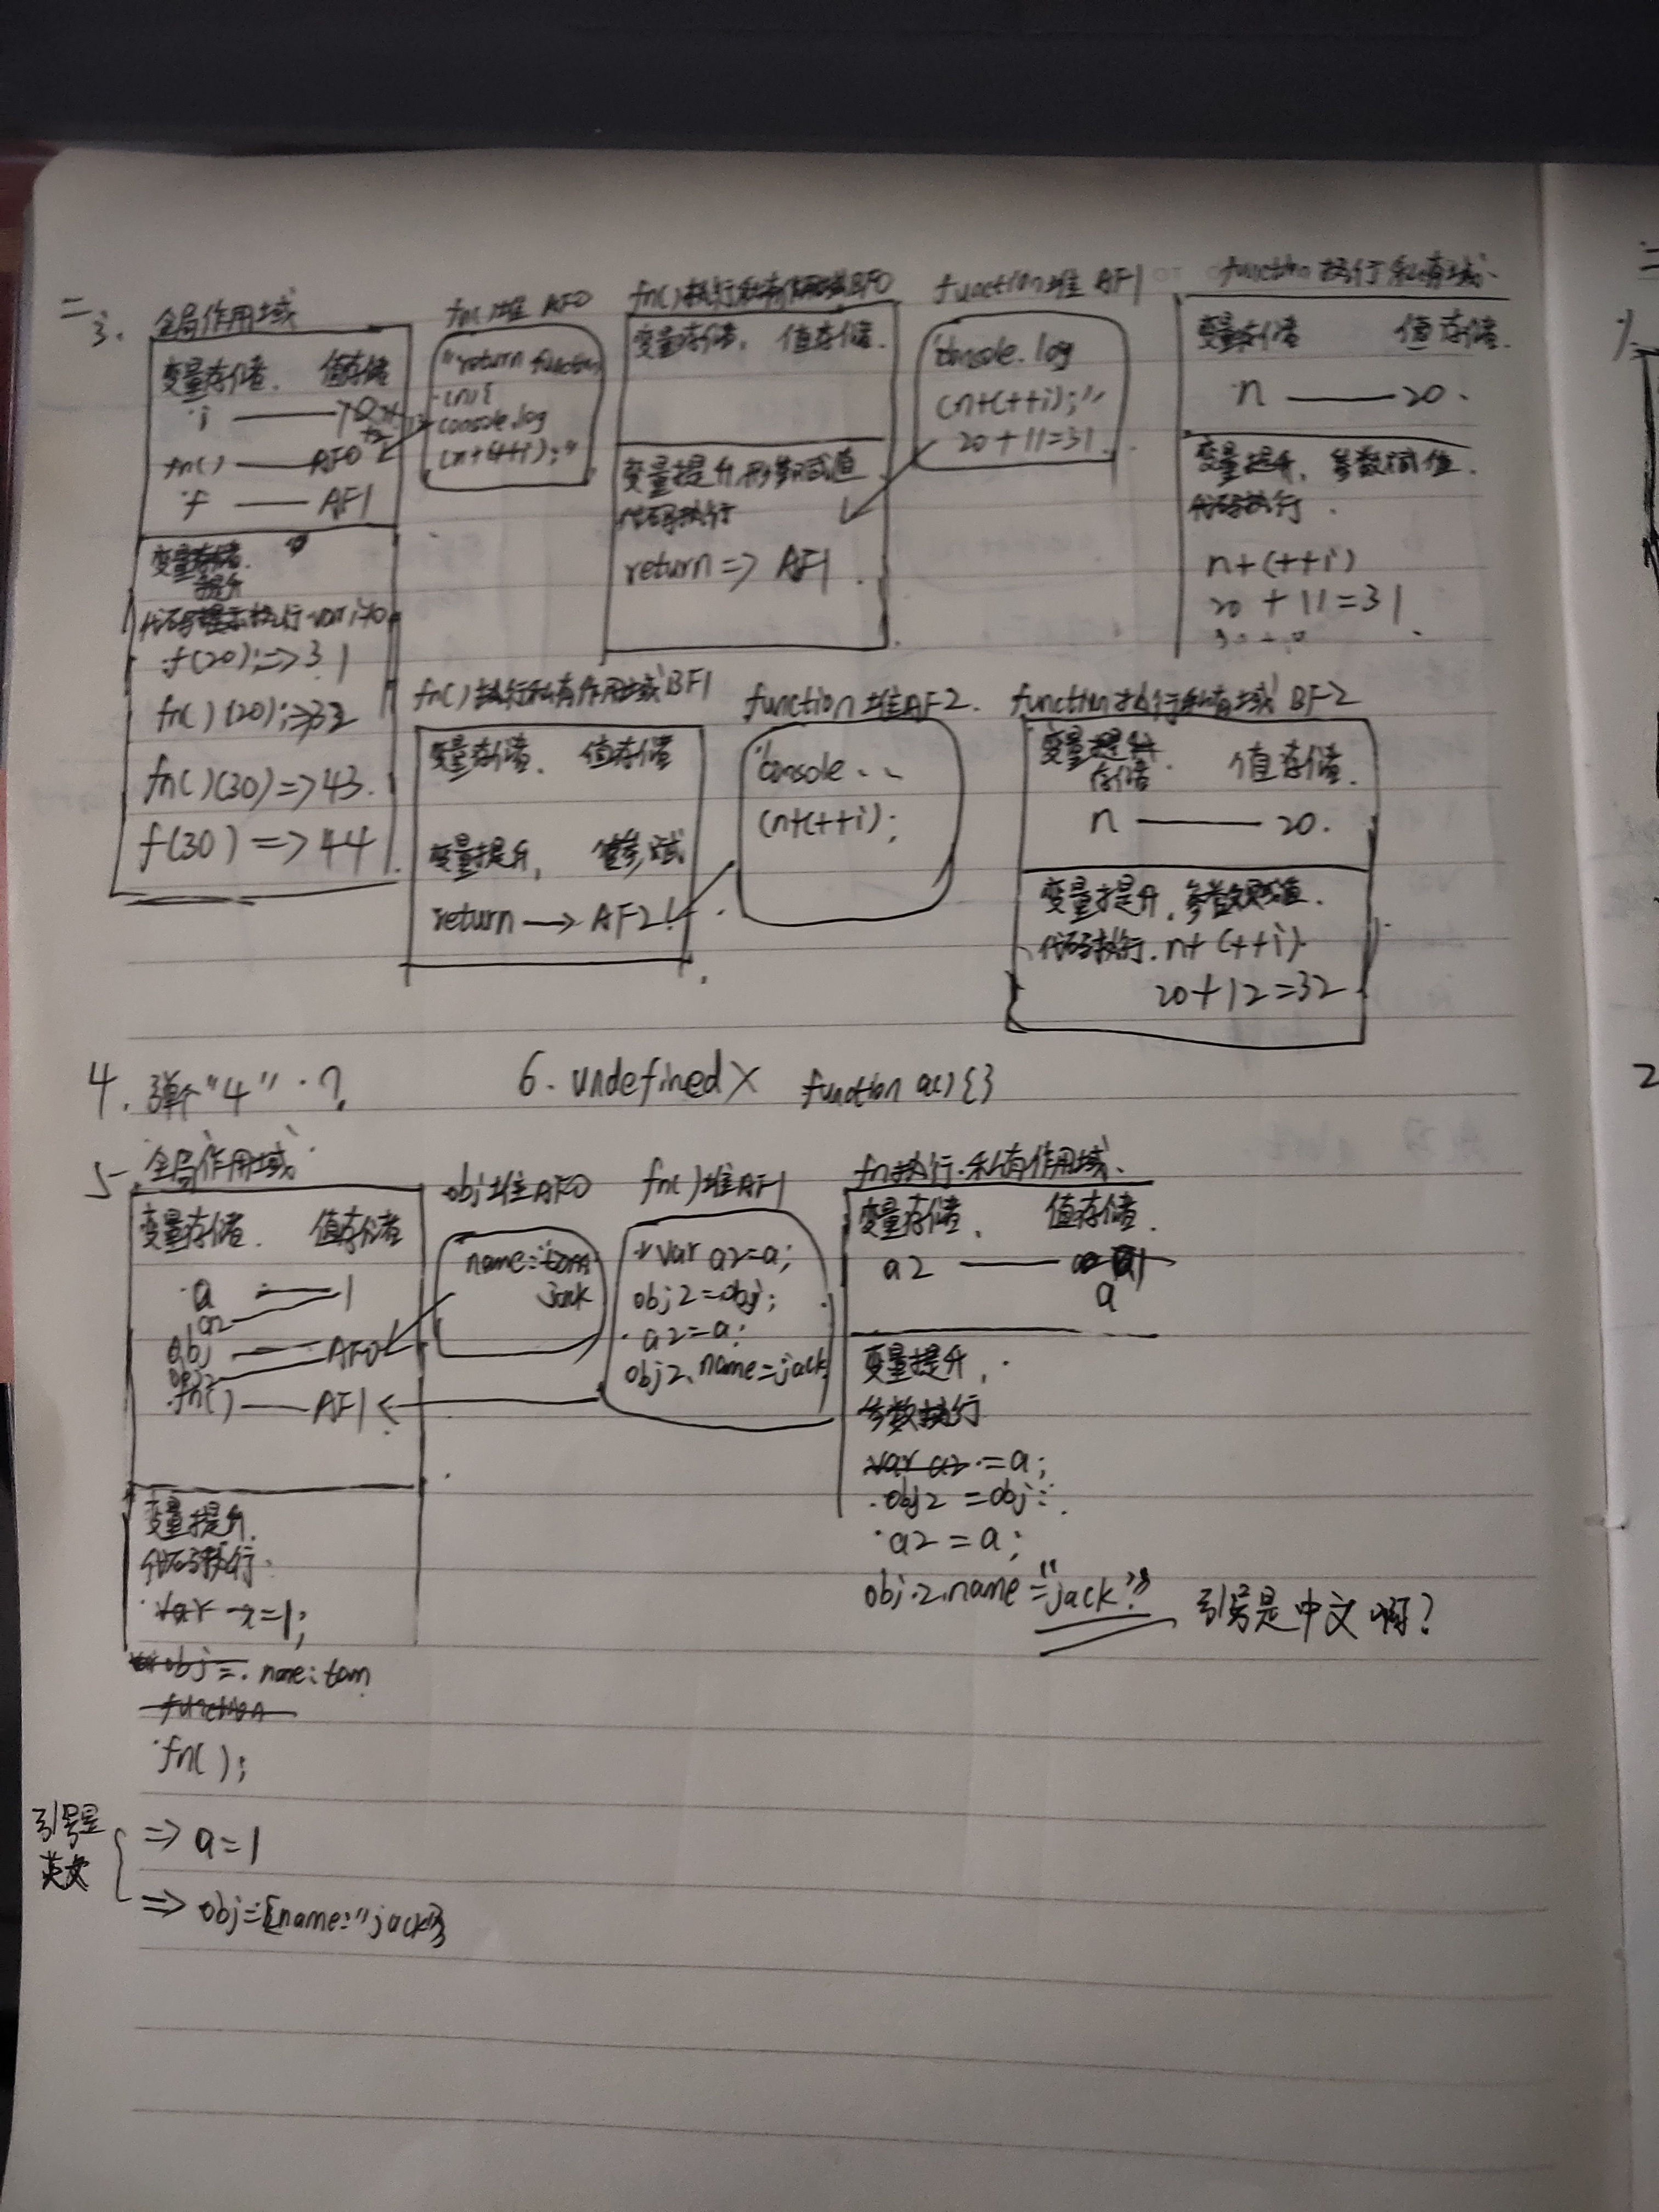 二
3.
全局作用域
变量存储. 值存储
i
fn() AF0
f AF1
代码执行 var i=10
f(20);=>31
fn()(20);=>32
fn()(30)=>43.
f(30)=>44
fn()堆 AF0
"return function
(n){
console.log
(n+(++i);"
fn()执行私有作用域BF0
变量存储. 值存储.
变量提升,形参赋值
代码执行
return=> AF1
function堆 AF1
"console.log
(n+(++i);"
20+11=31
function执行私有域.
变量存储 值存储.
n 20.
变量提升, 参数赋值.
代码执行.
n+(++i)
20+11=31
fn()执行私有作用域BF1
变量存储. 值存储
变量提升,
return→AF2
function堆AF2.
"console..
(n+(++i);
function执行私有域 BF2
变量存储. 值存储.
n 20.
变量提升,参数赋值.
代码执行.n+(++i)
20+12=32
4. 弹个"4".?
6. undefined× function a(){}
5
全局作用域
变量存储. 值存储
a 1
a2
obj AF0
obj2
fn() AF1
变量提升.
代码执行.
var a=1;
obj=. name:tom
function
fn();
引号是
英文
=> a=1
=> obj={name:"jack"}
obj堆AF0
name:"tom
jack
fn()堆AF1
var a2=a;
obj2=obj;
a2=a;
obj2.name=jack
fn执行.私有作用域.
变量存储. 值存储.
a2 a
变量提升,
参数执行
var a2=a;
obj2=obj;
a2=a;
obj2.name="jack"; 引号是中文啊?